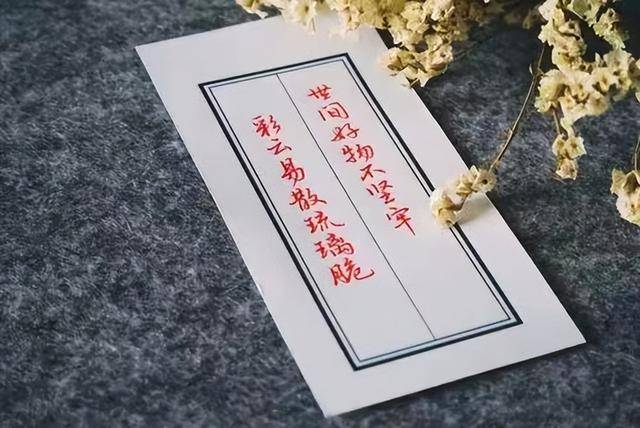 世间好物不坚牢
彩云易散琉璃脆